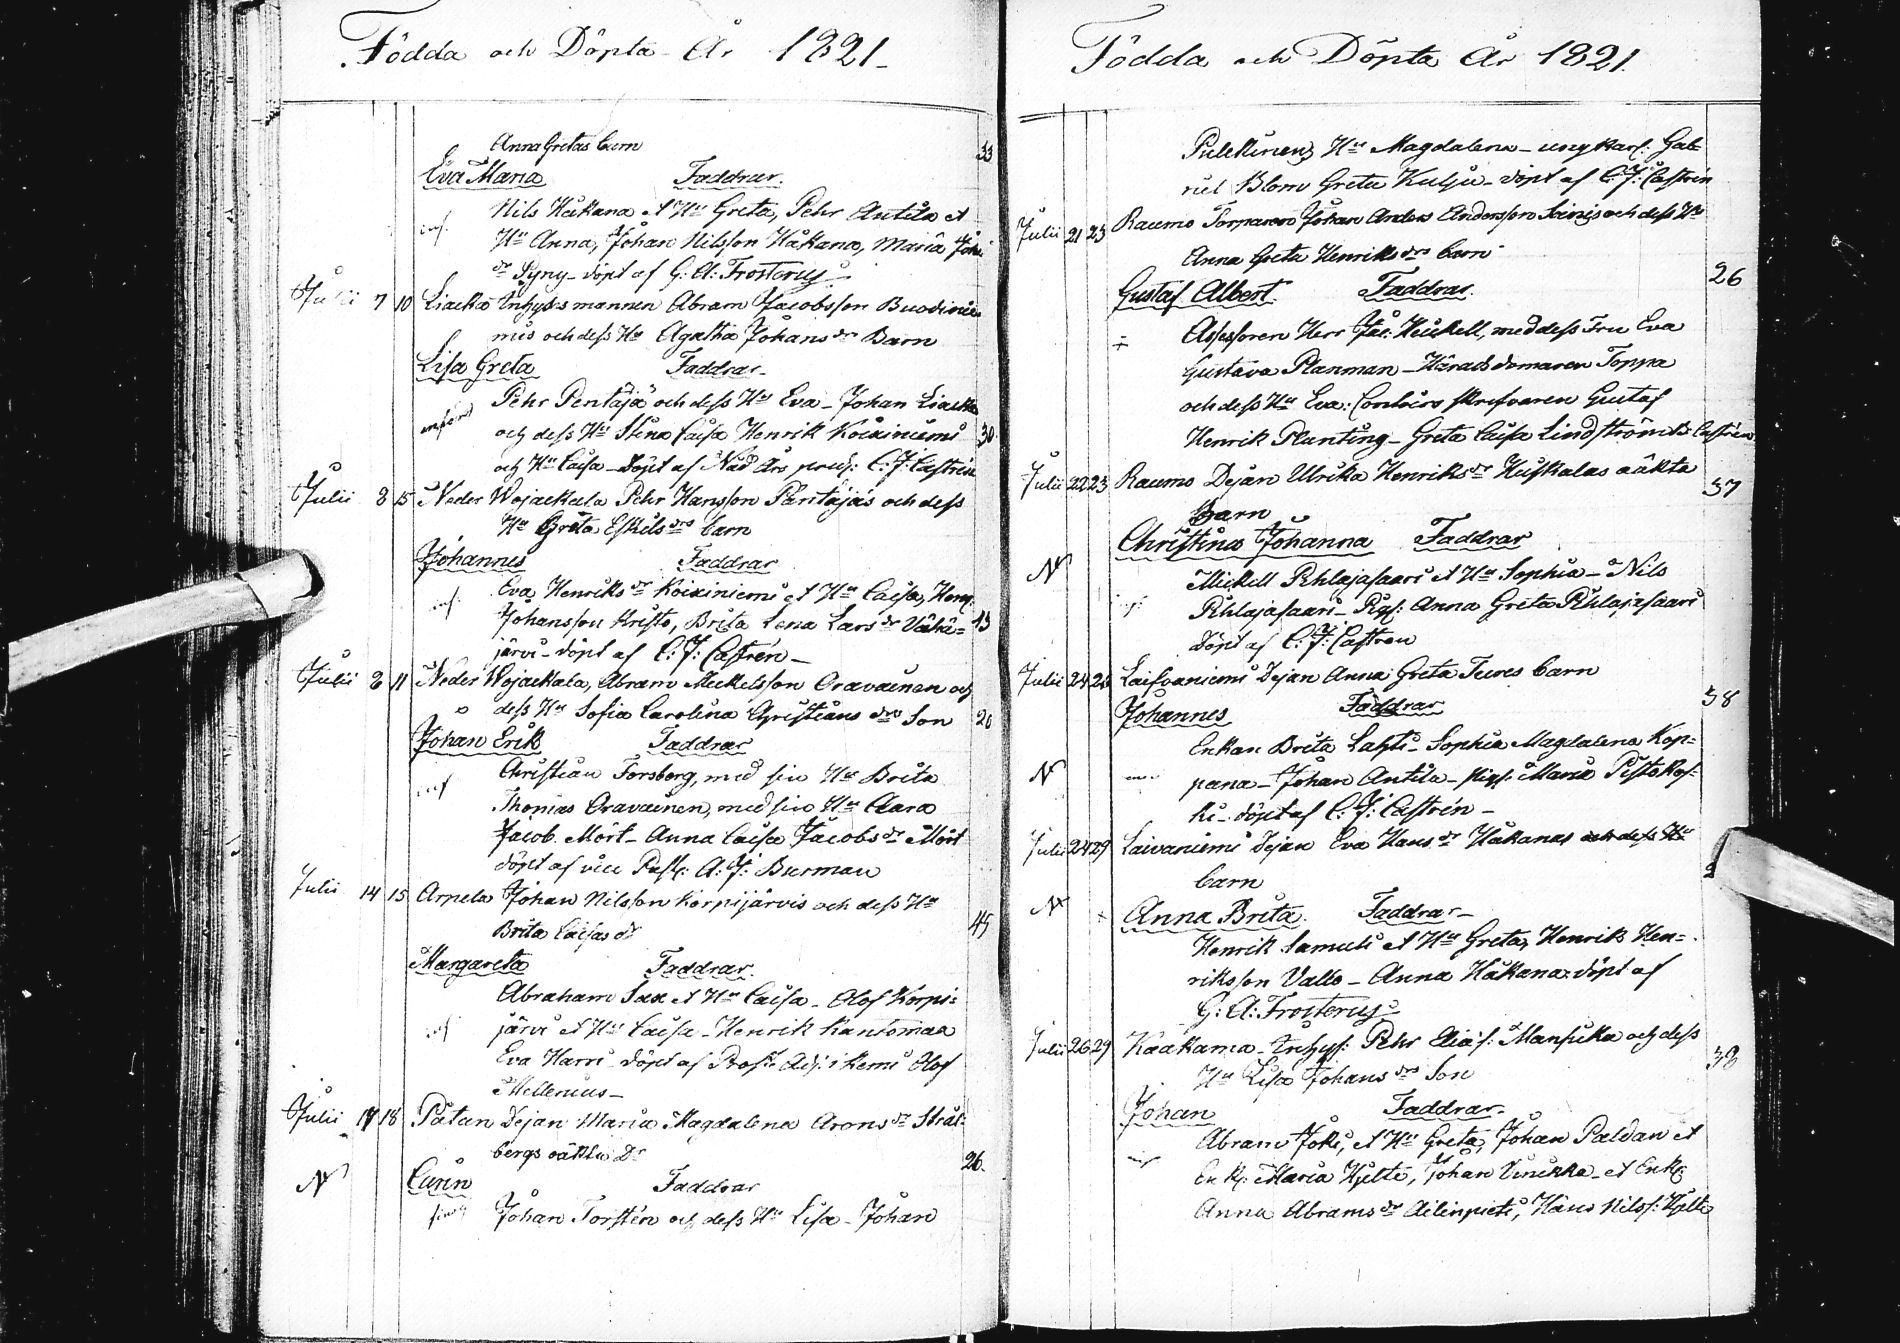 Födda och Döpta År 1821.
Anna Gretas barn 33
Eva Maria Faddrar.
Nils Håkana et Hu Greta, Pehr Antila et
inf. Hu Anna, Johan Nilsson Håkana, Maria Joh:
dr Syny döpt af G: A: Frosterus
Julii 7 10 Liacka Inhysesmannen Abram Jacobsson Buodinie
mis och dess Hu Agatha Johans dr Barn
Lisa Greta Faddrar
Pehr Pentäjä och dess Hu Eva Johan Liacka
och dess Hu Stina Caisa Henrik Koiviniemi 30
och Hu Caisa döpt af Nåd Års pred: C: J: Castrén
Julii 8 15 Neder Wojackala Pehr Hansson Päntäjäs och dess
Hu Greta Eskils drs barn
Johannes Faddrar
inf: Eva Henriks dr Koiviniemi et Hu Caisa, Henr:
Johansson Kristo, Brita Lena Lars dr Väkä= 13
järvi döpt af C: J: Castrén
Julii 8 11 Neder Wojackala, Abram Mickelsson Oravainen och
dess Hu Sofia Carolina Christians drs Son 20
Johan Erik Faddrar
inf Christian Forsberg, med sin Hu Brita
Thomas Oravainen, med sin Hu Clara
Jacob Mört Anna Caisa Jacobs dr Mört
döpt af vice Past: A: J: Burman
Julii 14 15 Arpela Johan Nilsson Korpijärvis och dess Hu
Brita Caisas dr 45
Margareta Faddrar
Abraham Sax et Hu Caisa Olof Korpi=
inf järvi et Hu Caisa Henrik Kantomaa
Eva Harri döpt af Past: Adj: i Kemi Olof
Mellenius
Julii 17 18 Påtan Dejan Maria Magdalena Arons dr Strål=
bergs oäkta Dr 26.
N Carin Faddrar
Johan Torstén och dess Hu Lisa Johan
Födda och Döpta År 1821.
Pulkkinen, Hu Magdalena ung Karl: Gab
riel Blom Greta Kulju döpt af C: J: Castrén
Julii 21 23 Raumo Torparen Johan Anders Andersson Leinis och dess Hu
Anna Greta Henriks drs barn 26
Gustaf Albert Faddrar.
Assessoren Herr Jac: Heickell, med dess Fru Eva
Gustava Planman Häradsdomaren Toppa
och dess Hu Eva: Contoirs skrifvaren Gustaf
Henrik Planting Greta Caisa Lindström C: Castrén
Julii 22 23 Raumo Dejan Ulrika Henriks dr Huskalas oäkta 37
Barn
Christina Johanna Faddrar
N Mickell Pihlajasaari et Hu Sophia Nils
inf: Pihlajasaari Pig: Anna Greta Pihlajasaari
döpt af C: J: Castren
Julii 24 26 Laivaniemi Dejan Anna Greta Tures barn 38
Johannes Faddrar
Enkan Brita Lahti Sophia Magdalena Kop=
N pana Johan Antila Pig: Maria Pistokos=
ki döpt af C: J: Castrén
Julii 24 29 Laivaniemi Dejan Eva Hans dr Håkanas och dess Hu
barn
N Anna Brita Faddrar
Henrik Samuli et Hu Greta, Henrik Hen=
riksson Vallo Anna Håkana döpt af
G: A: Frosterus
Julii 26 29 Kaakama Inhys: Pehr Elias: Mansikka och dess 38
Hu Lisa Johans drs Son
Johan Faddrar
Abram Joki, et Hu Greta, Johan Paldan et
Enk: Maria Hjelte, Johan Vinikka et Enk:
Anna Abrams dr Ailinpieti, Hans Nilss: Hjelte